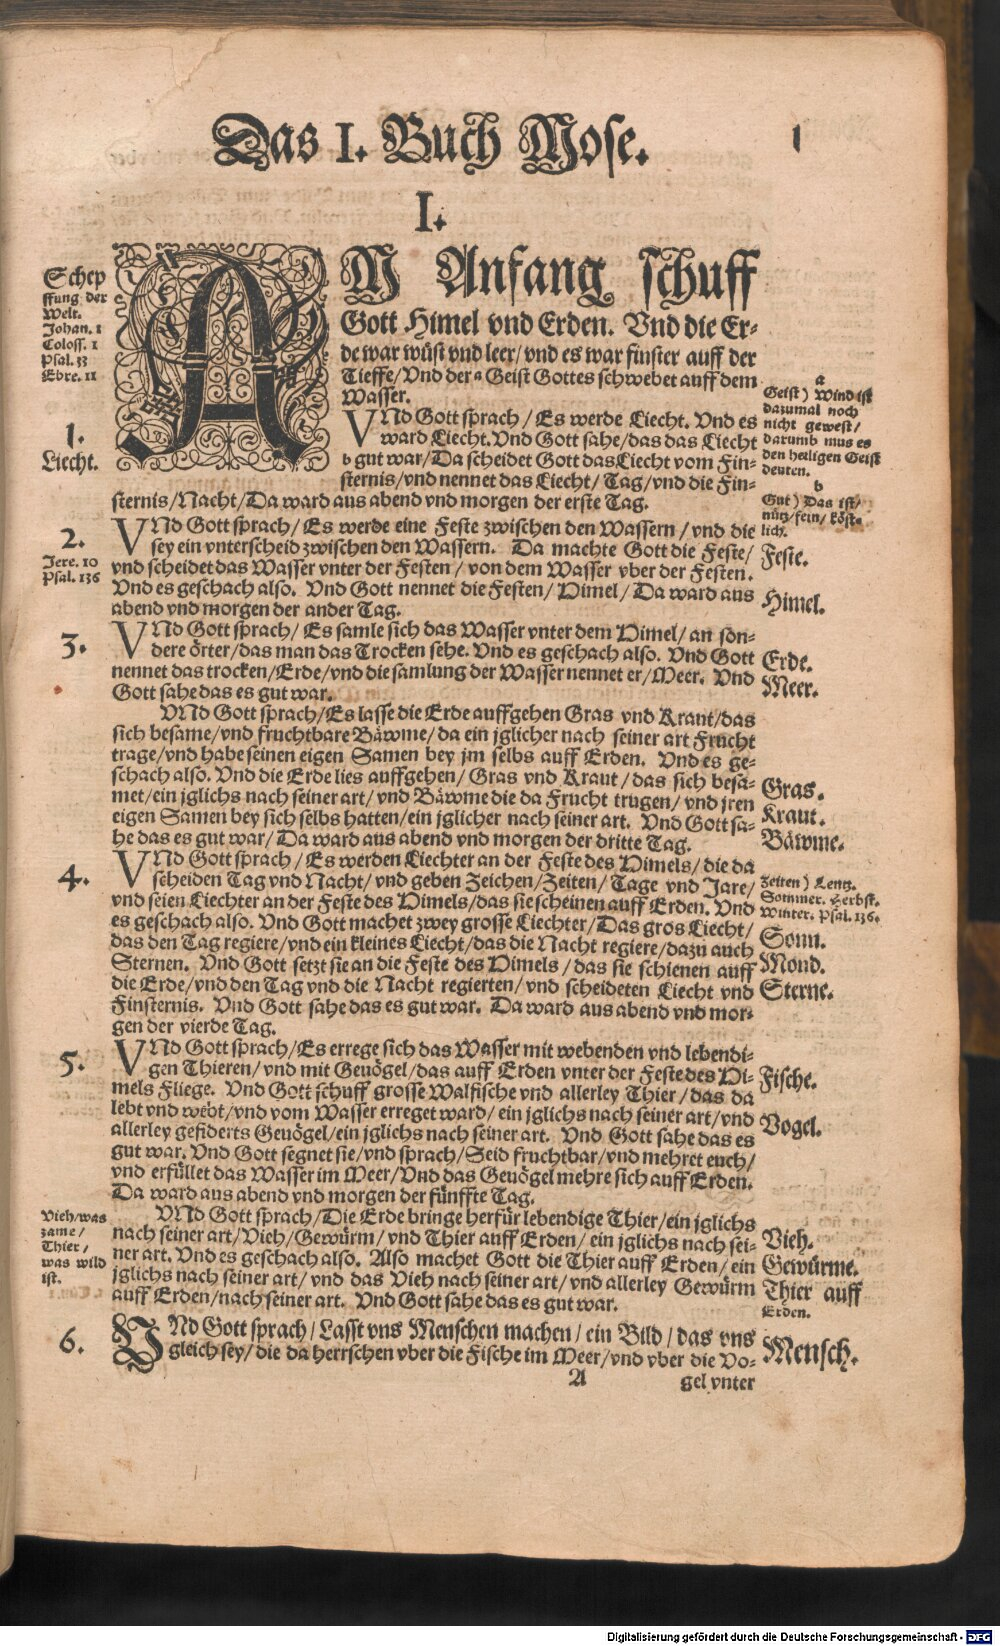 Das I. Buch Mose.
1
I.
AM Anfang schuff
Gott Himel vnd Erden. Vnd die Er⸗
de war wüst vnd leer/ vnd es war finster auff der
Tieffe/ Vnd der a Geist Gottes schwebet auff dem
Wasser.
Schep
ffung der
Welt.
Johan. 1
Coloss. 1
Psal. 33
Ebre. 11
a
Geist) Wind ist
dazumal noch
nicht gewest/
darumb mus es
den heiligen Geist
deuten.
b
Gut) Das ist/
nütz/ fein/ köst⸗
lich.
1.
Liecht.
VNd Gott sprach/ Es werde Liecht. Vnd es
ward Liecht. Vnd Gott sahe/ das das Liecht
b gut war/ Da scheidet Gott das Liecht vom Fin⸗
sternis/ vnd nennet das Liecht/ Tag/ vnd die Fin⸗
sternis/ Nacht/ Da ward aus abend vnd morgen der erste Tag.
2.
Jere. 10
Psal. 136
VNd Gott sprach/ Es werde eine Feste zwischen den Wassern/ vnd die
sey ein vnterscheid zwischen den Wassern. Da machte Gott die Feste/
vnd scheidet das Wasser vnter der Festen/ von dem Wasser vber der Festen.
Vnd es geschach also. Vnd Gott nennet die Festen/ Himel/ Da ward aus
abend vnd morgen der ander Tag.
Feste.
Himel.
3.
VNd Gott sprach/ Es samle sich das Wasser vnter dem Himel/ an son⸗
dere örter/ das man das Trocken sehe. Vnd es geschach also. Vnd Gott
nennet das trocken/ Erde/ vnd die samlung der Wasser nennet er/ Meer. Vnd
Gott sahe das es gut war.
Erde.
Meer.
VNd Gott sprach/ Es lasse die Erde auffgehen Gras vnd Kraut/ das
sich besame/ vnd fruchtbare Bäwme/ da ein jglicher nach seiner art Frucht
trage/ vnd habe seinen eigen Samen bey jm selbs auff Erden. Vnd es ge⸗
schach also. Vnd die Erde lies auffgehen/ Gras vnd Kraut/ das sich besa⸗
met/ ein jglichs nach seiner art/ vnd Bäwme die da Frucht trugen/ vnd jren
eigen Samen bey sich selbs hatten/ ein jglicher nach seiner art. Vnd Gott sa⸗
he das es gut war/ Da ward aus abend vnd morgen der dritte Tag.
Gras.
Kraut.
Bäwme.
4.
VNd Gott sprach/ Es werden Liechter an der Feste des Himels/ die da
scheiden Tag vnd Nacht/ vnd geben Zeichen/ Zeiten/ Tage vnd Jare/
vnd seien Liechter an der Feste des Himels/ das sie scheinen auff Erden. Vnd
es geschach also. Vnd Gott machet zwey grosse Liechter/ Das gros Liecht/
das den Tag regiere/ vnd ein kleines Liecht/ das die Nacht regiere/ dazu auch
Sternen. Vnd Gott setzt sie an die Feste des Himels/ das sie schienen auff
die Erde/ vnd den Tag vnd die Nacht regierten/ vnd scheideten Liecht vnd
Finsternis. Vnd Gott sahe das es gut war. Da ward aus abend vnd mor⸗
gen der vierde Tag.
Zeiten) Lentz.
Sommer. Herbst.
Winter. Psal. 136.
Sonn.
Mond.
Sterne.
5.
VNd Gott sprach/ Es errege sich das Wasser mit webenden vnd lebendi⸗
gen Thieren/ vnd mit Geuögel/ das auff Erden vnter der Feste des Hi⸗
mels Fliege. Vnd Gott schuff grosse Walfische vnd allerley Thier/ das da
lebt vnd webt/ vnd vom Wasser erreget ward/ ein jglichs nach seiner art/ vnd
allerley gefiderts Geuögel/ ein jglichs nach seiner art. Vnd Gott sahe das es
gut war. Vnd Gott segnet sie/ vnd sprach/ Seid fruchtbar/ vnd mehret euch/
vnd erfüllet das Wasser im Meer/ Vnd das Geuögel mehre sich auff Erden.
Da ward aus abend vnd morgen der fünffte Tag.
Fische.
Vogel.
Vieh/ was
zame/
Thier/
was wild
ist.
VNd Gott sprach/ Die Erde bringe herfür lebendige Thier/ ein jglichs
nach seiner art/ Vieh/ Gewürm/ vnd Thier auff Erden/ ein jglichs nach sei⸗
ner art. Vnd es geschach also. Also machet Gott die Thier auff Erden/ ein
jglichs nach seiner art/ vnd das Vieh nach seiner art/ vnd allerley Gewürm
auff Erden/ nach seiner art. Vnd Gott sahe das es gut war.
Vieh.
Gewürme.
Thier auff
Erden.
6.
VNd Gott sprach/ Lasst vns Menschen machen/ ein Bild/ das vns
gleich sey/ die da herrschen vber die Fische im Meer/ vnd vber die Vo⸗
Mensch.
A
gel vnter
Digitalisierung gefördert durch die Deutsche Forschungsgemeinschaft - DFG